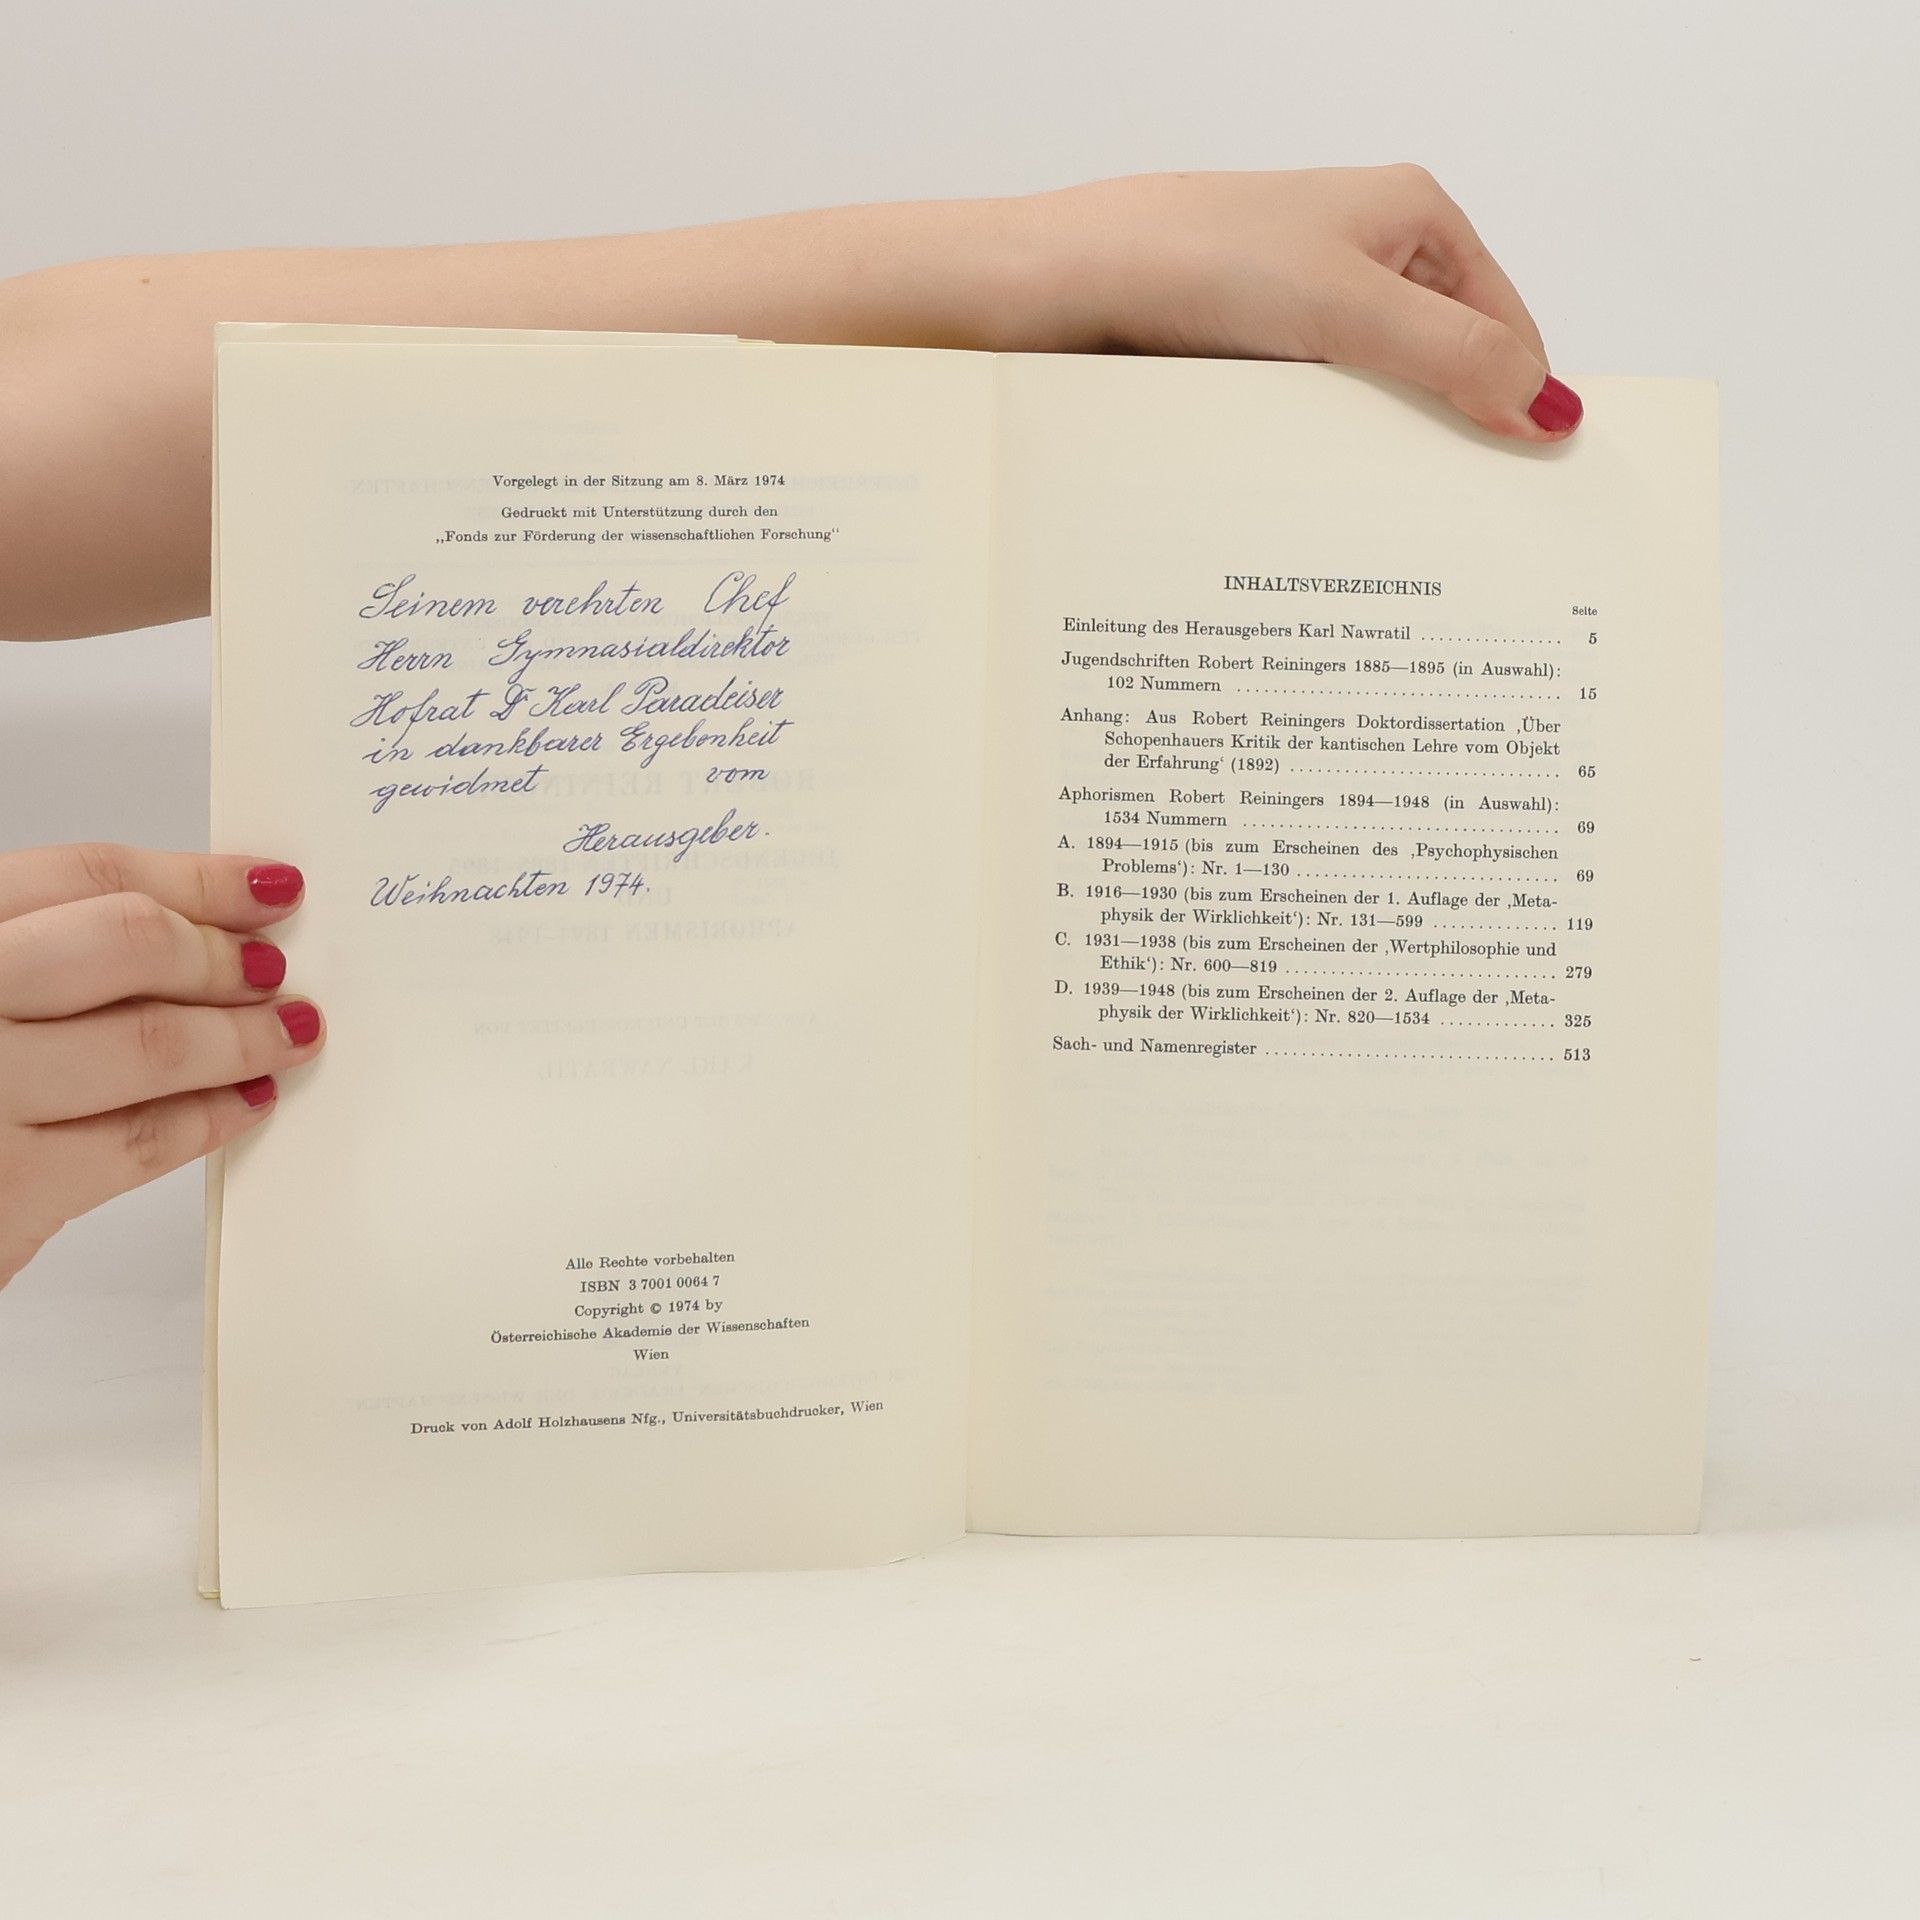 Vorgelegt in der Sitzung am 8. März 1974
Gedruckt mit Unterstützung durch den
„Fonds zur Förderung der wissenschaftlichen Forschung“
Seinem verehrten Chef
Herrn Gymnasialdirektor
Hofrat Dr Karl Paradeiser
in dankbarer Ergebenheit
gewidmet vom
Herausgeber.
Weihnachten 1974.
Alle Rechte vorbehalten
ISBN 3 7001 0064 7
Copyright © 1974 by
Österreichische Akademie der Wissenschaften
Wien
Druck von Adolf Holzhausens Nfg., Universitätsbuchdrucker, Wien
INHALTSVERZEICHNIS
Seite
Einleitung des Herausgebers Karl Nawratil ................ 5
Jugendschriften Robert Reiningers 1885—1895 (in Auswahl):
102 Nummern .................................. 15
Anhang: Aus Robert Reiningers Doktordissertation ‚Über
Schopenhauers Kritik der kantischen Lehre vom Objekt
der Erfahrung‘ (1892) ............................. 65
Aphorismen Robert Reiningers 1894—1948 (in Auswahl):
1534 Nummern .................................. 69
A. 1894—1915 (bis zum Erscheinen des ‚Psychophysischen
Problems‘): Nr. 1—130 ............................ 69
B. 1916—1930 (bis zum Erscheinen der 1. Auflage der ‚Meta-
physik der Wirklichkeit‘): Nr. 131—599 .............. 119
C. 1931—1938 (bis zum Erscheinen der ‚Wertphilosophie und
Ethik‘): Nr. 600—819 ............................. 279
D. 1939—1948 (bis zum Erscheinen der 2. Auflage der ‚Meta-
physik der Wirklichkeit‘): Nr. 820—1534 ............. 325
Sach- und Namenregister ............................... 513